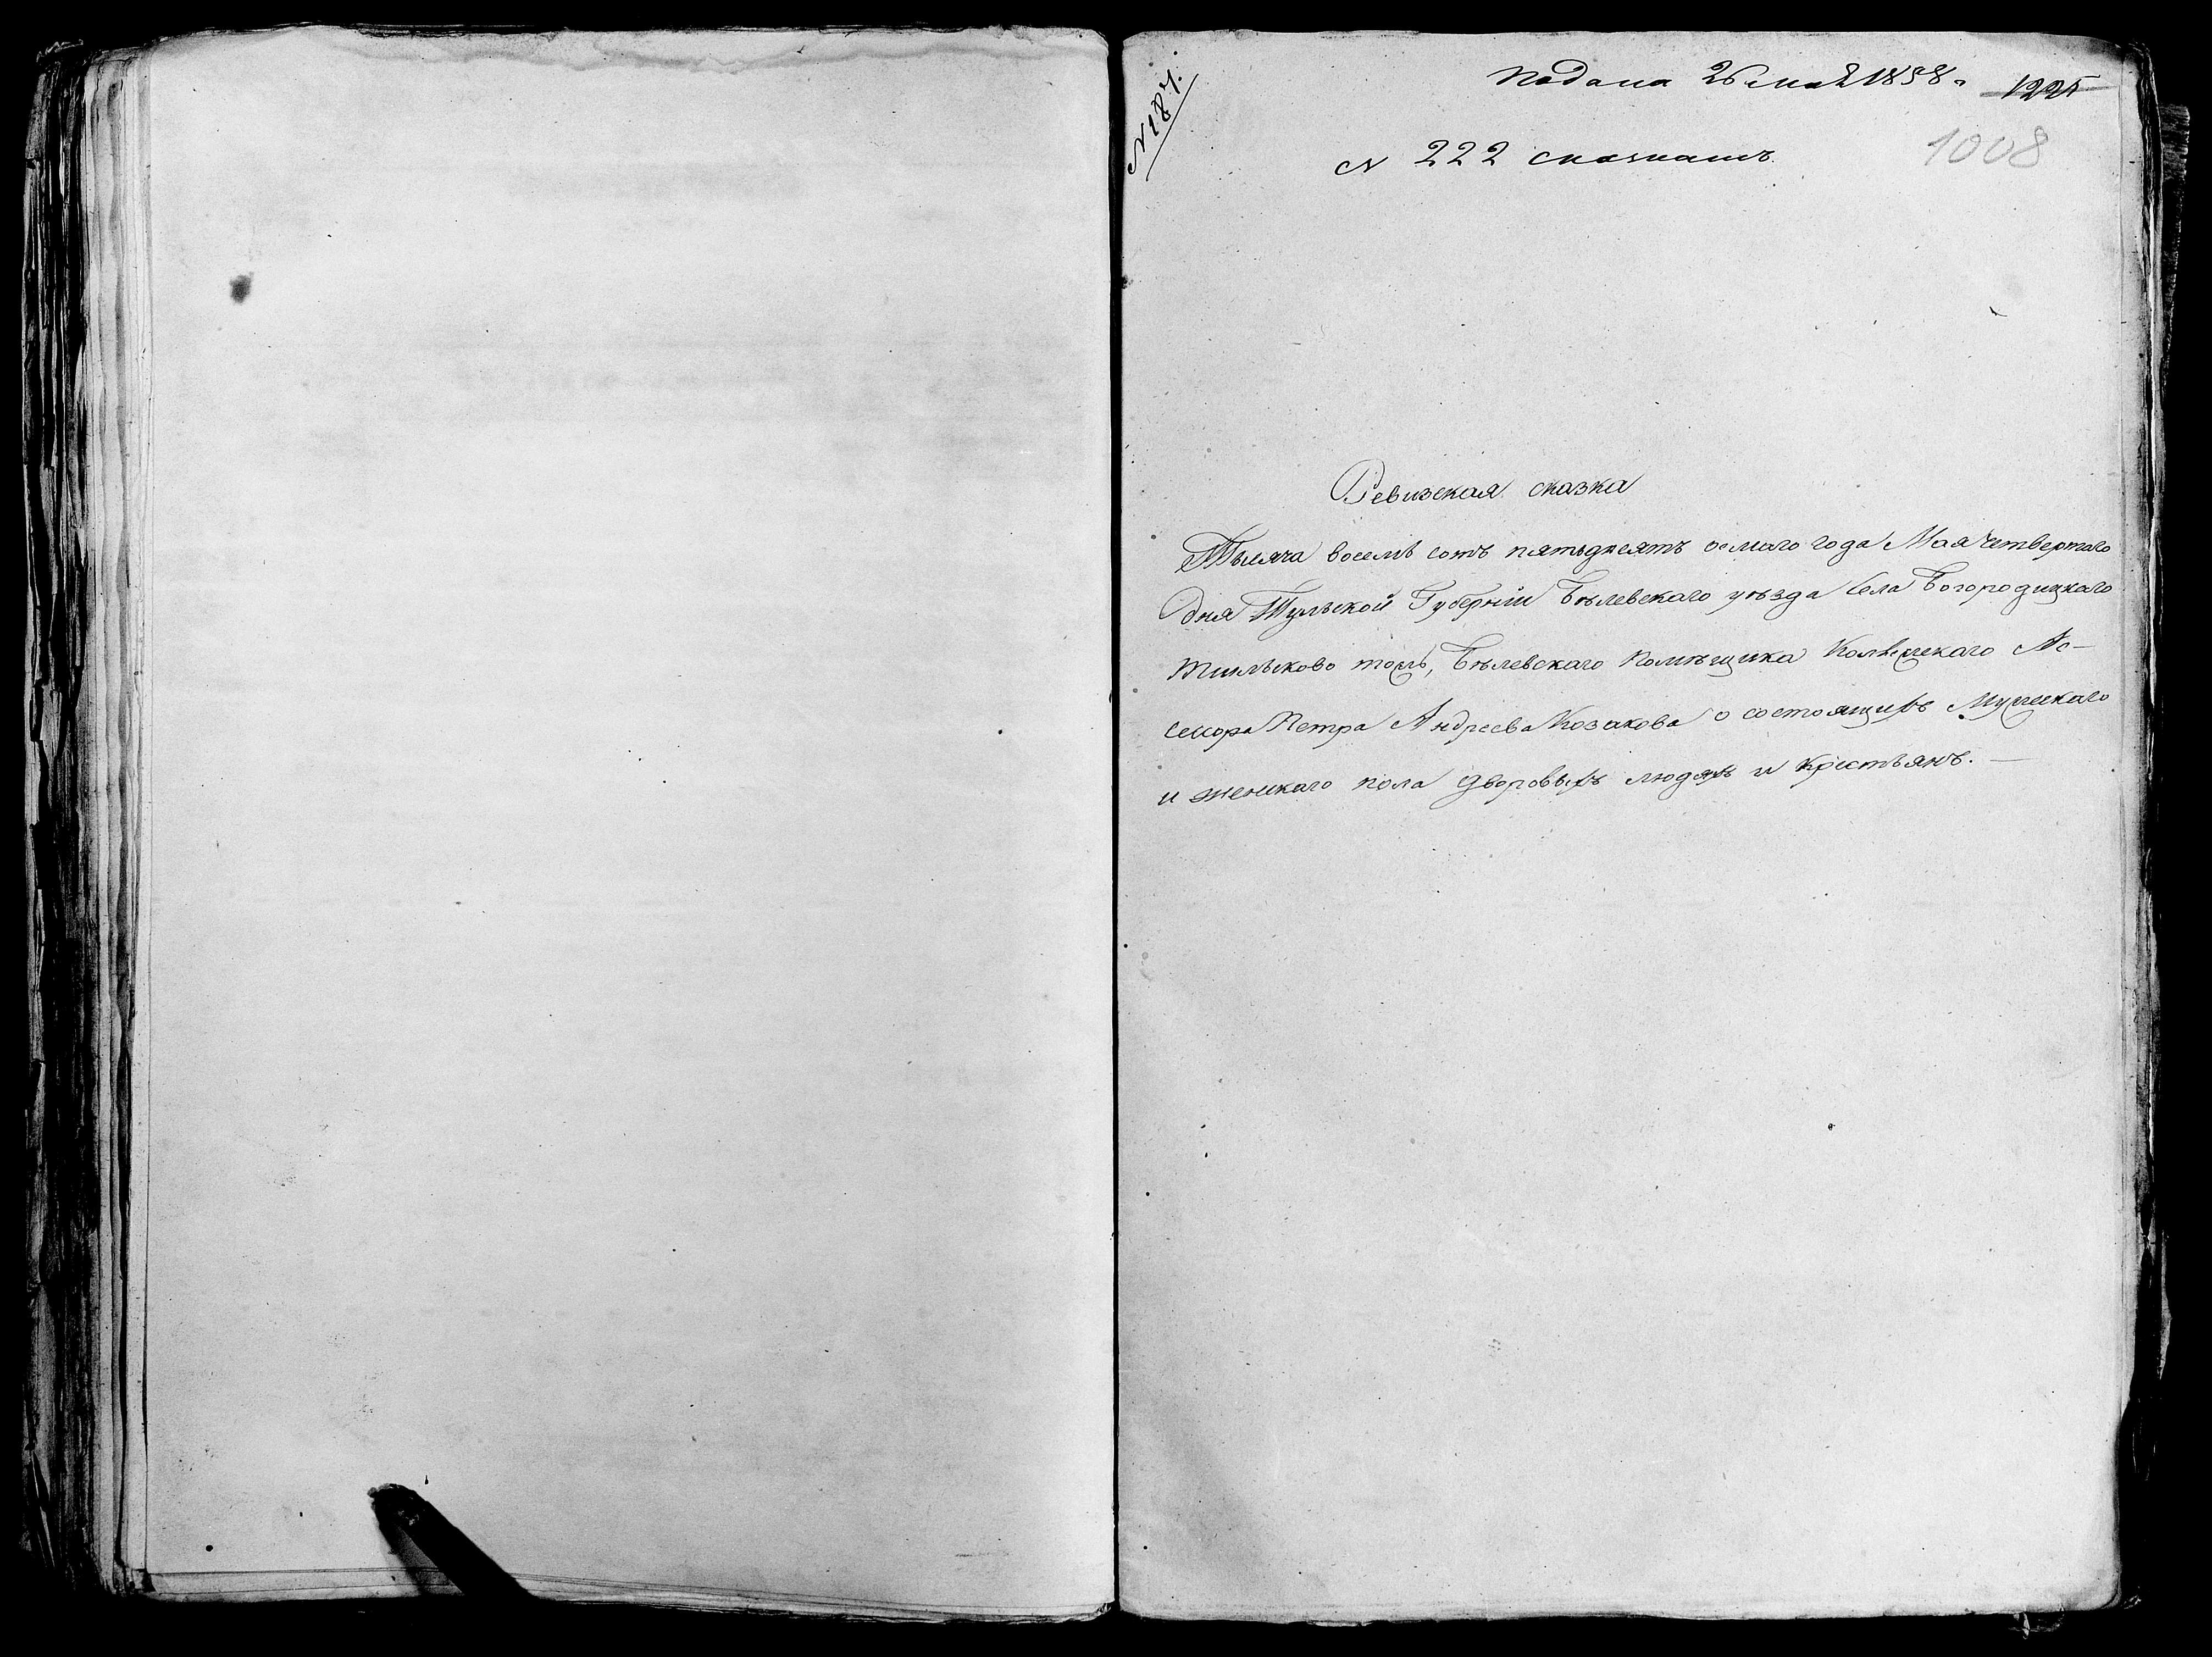 N 187.
Подана 26 мая 1858 г. 1225
N 222 сказкамъ.
1008
Ревизская сказка
Тысяча восемь сотъ пятьдесятъ осмаго года Мая четвертаго
дня Тульской Губерніи Бѣлевскаго уѣзда Села Богородицкаго
тожъ, Бѣлевскаго Помѣщика Колѣжскаго Ас-
сесора Петра Андреева Козакова о состоящихъ Мужескаго
и женскаго пола дворовыхъ людяхъ и крестьянъ. —